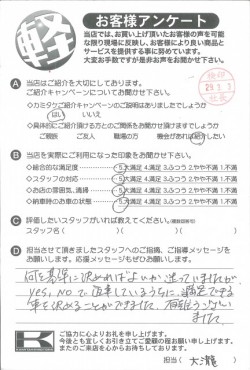 軽
お客様アンケート
当店では、お買い上げ頂いたお客様の声を可能な
限り現場に反映し、お客様により良い商品と
サービスを提供する事に努めています。
大変お手数ですが是非お声をお聞かせ下さい。
A 当店はご紹介を大切にしております。
ご紹介キャンペーンについてお聞かせ下さい。
◇カミタケご紹介キャンペーンのご説明はありましたでしょうか
はい いいえ
◇具体的にご紹介頂ける方とのご関係をお聞かせ頂けますでしょうか
ご親族 ご友人 職場の方 機会があれば紹介したい
B 当店を実際にご利用になった印象をお聞かせ下さい。
◇総合的な満足度 5.大満足 4.満足 3.ふつう 2.やや不満 1.不満
◇スタッフの対応 5.大満足 4.満足 3.ふつう 2.やや不満 1.不満
◇お店の雰囲気、清掃 5.大満足 4.満足 3.ふつう 2.やや不満 1.不満
◇納車時のお車の状態 5.大満足 4.満足 3.ふつう 2.やや不満 1.不満
C 評価したいスタッフがいれば教えてください。(複数回答可)
スタッフ名( )( )
D 担当させて頂きましたスタッフへのご指摘、ご指導メッセージを
お願いします。応援メッセージもぜひお願いします。
何を基準に決めればよいか迷っていましたが
yes, NOで返事しているうちに満足できる
車を決めることができました。有難うござい
ました。
K
ご協力に心よりお礼を申し上げます。
今後とも宜しくお引き立てご愛顧の程お願い申し上げます。
またのご来店を心からお待ちしております。
担当( 大瀧 )